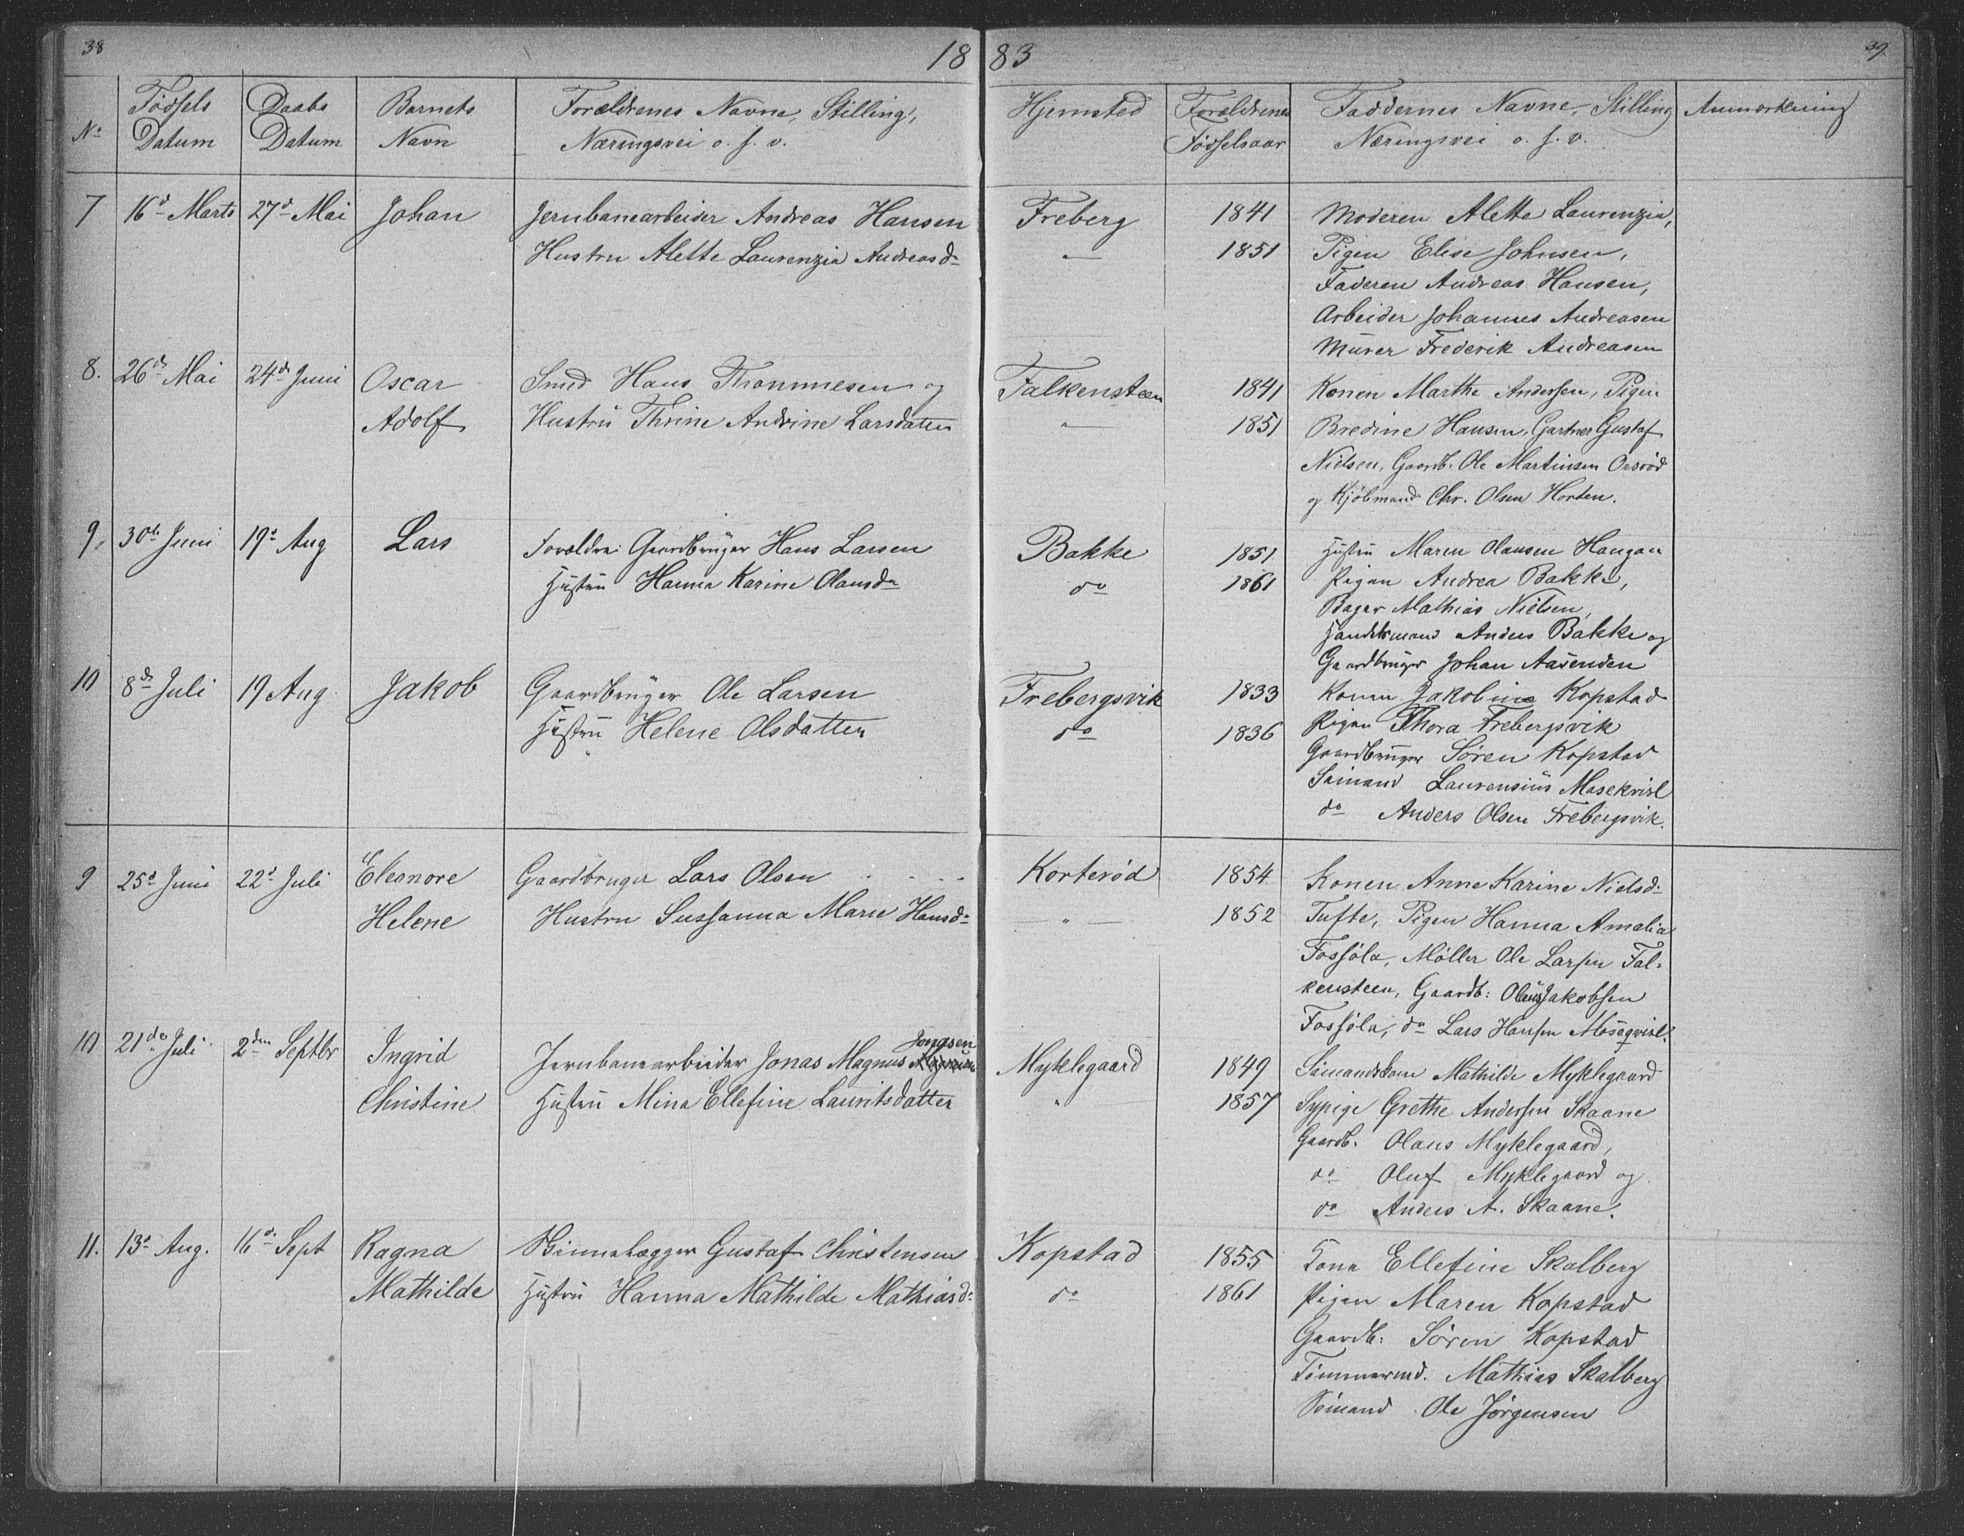 38
18 83
39.
No
Fødsels Datum
Daabs Datum
Barnets Navn
Forældrenes Navne, Stilling, Næringsvei o. s. v.
Hjemsted
Forældrenes Fødselsaar
Faddernes Navne, Stilling Næringsvei o. s. v.
Anmærkning
7 16d Marts 27d Mai Johan Jernbanearbeider Andreas Hansen Freberg 1841 Moderen Alette Laurenzia,
Hustru Alette Laurenzia Andreasd. — 1851 Pigen Elise Johnsen,
Faderen Andreas Hansen,
Arbeider Johannes Andreasen
Murer Frederik Andreasen
8. 26de Mai 24de Juni Oscar Smed Hans Thommesen og Falkensteen 1841 Konen Marthe Anderssen, Pigen
Adolf Hustru Thrine Andrine Larsdatter — 1851 Bredine Hansen, Gartner Gustaf
Nielsen, Gaardb. Ole Martinsen Orsrød
og Kjøbmand Chr. Olsen Horten.
9. 30de Juni 19d Aug Lars Forældre: Gaardbruger Hans Larsen Bakke 1851 Hustru Maren Olausen Haugan
Hustru Hanna Karine Olausdr do 1861 Pigen Andrea Bakke,
Bager Mathias Nielsen,
Handelsmand Anders Bakke og
Gaardbruger Johan Aasenden
10 8de Juli 19 Aug. Jakob Gaardbruger Ole Larsen Frebergsvik 1833 Konen Jakobine Kopstad
Hustru Helene Olsdatter do 1836 Pigen Thora Frebergsvik
Gaardbruger Søren Kopstad
Sømand Laurensius Masekvisl
do Anders Olsen Frebergsvik.
9 25d Juni 22d Juli Eleonore Gaardbruger Lars Olsen Korterød 1854 Konen Anne Karine Nielsd.
Helene Hustru Sussanna Marie Hansd. — 1852 Tufte, Pigen Hanna Amalia
Fossøla, Møller Ole Larsen Fal-
kensteen, Gaardb: Olaus Jakobsen
Fossøla, do Lars Hansen Moseqvisl.
10 21de Juli 2den Septbr Ingrid Jernbanearbeider Jonas Magnus Jongsen Myklegaard 1849 Sømandskone Mathilde Myklegaard
Christine Hustru Mina Ellefine Lauritsdatter " 1857 Sypige Grethe Andersen Skaane
Gaardb. Olaus Myklegaard,
do Oluf Myklegaard og
do Anders A. Skaane.
11. 13d Aug. 16d Sept Ragna Gustaf Christensen Kopstad 1855 Kone Ellefine Skalberg
Mathilde Hustru Hanna Mathilde Mathiasd. do 1861 Pigen Maren Kopstad
Gaardb: Søren Kopstad
Tømmermd. Mathias Skalberg
Sømand Ole Jørgensen